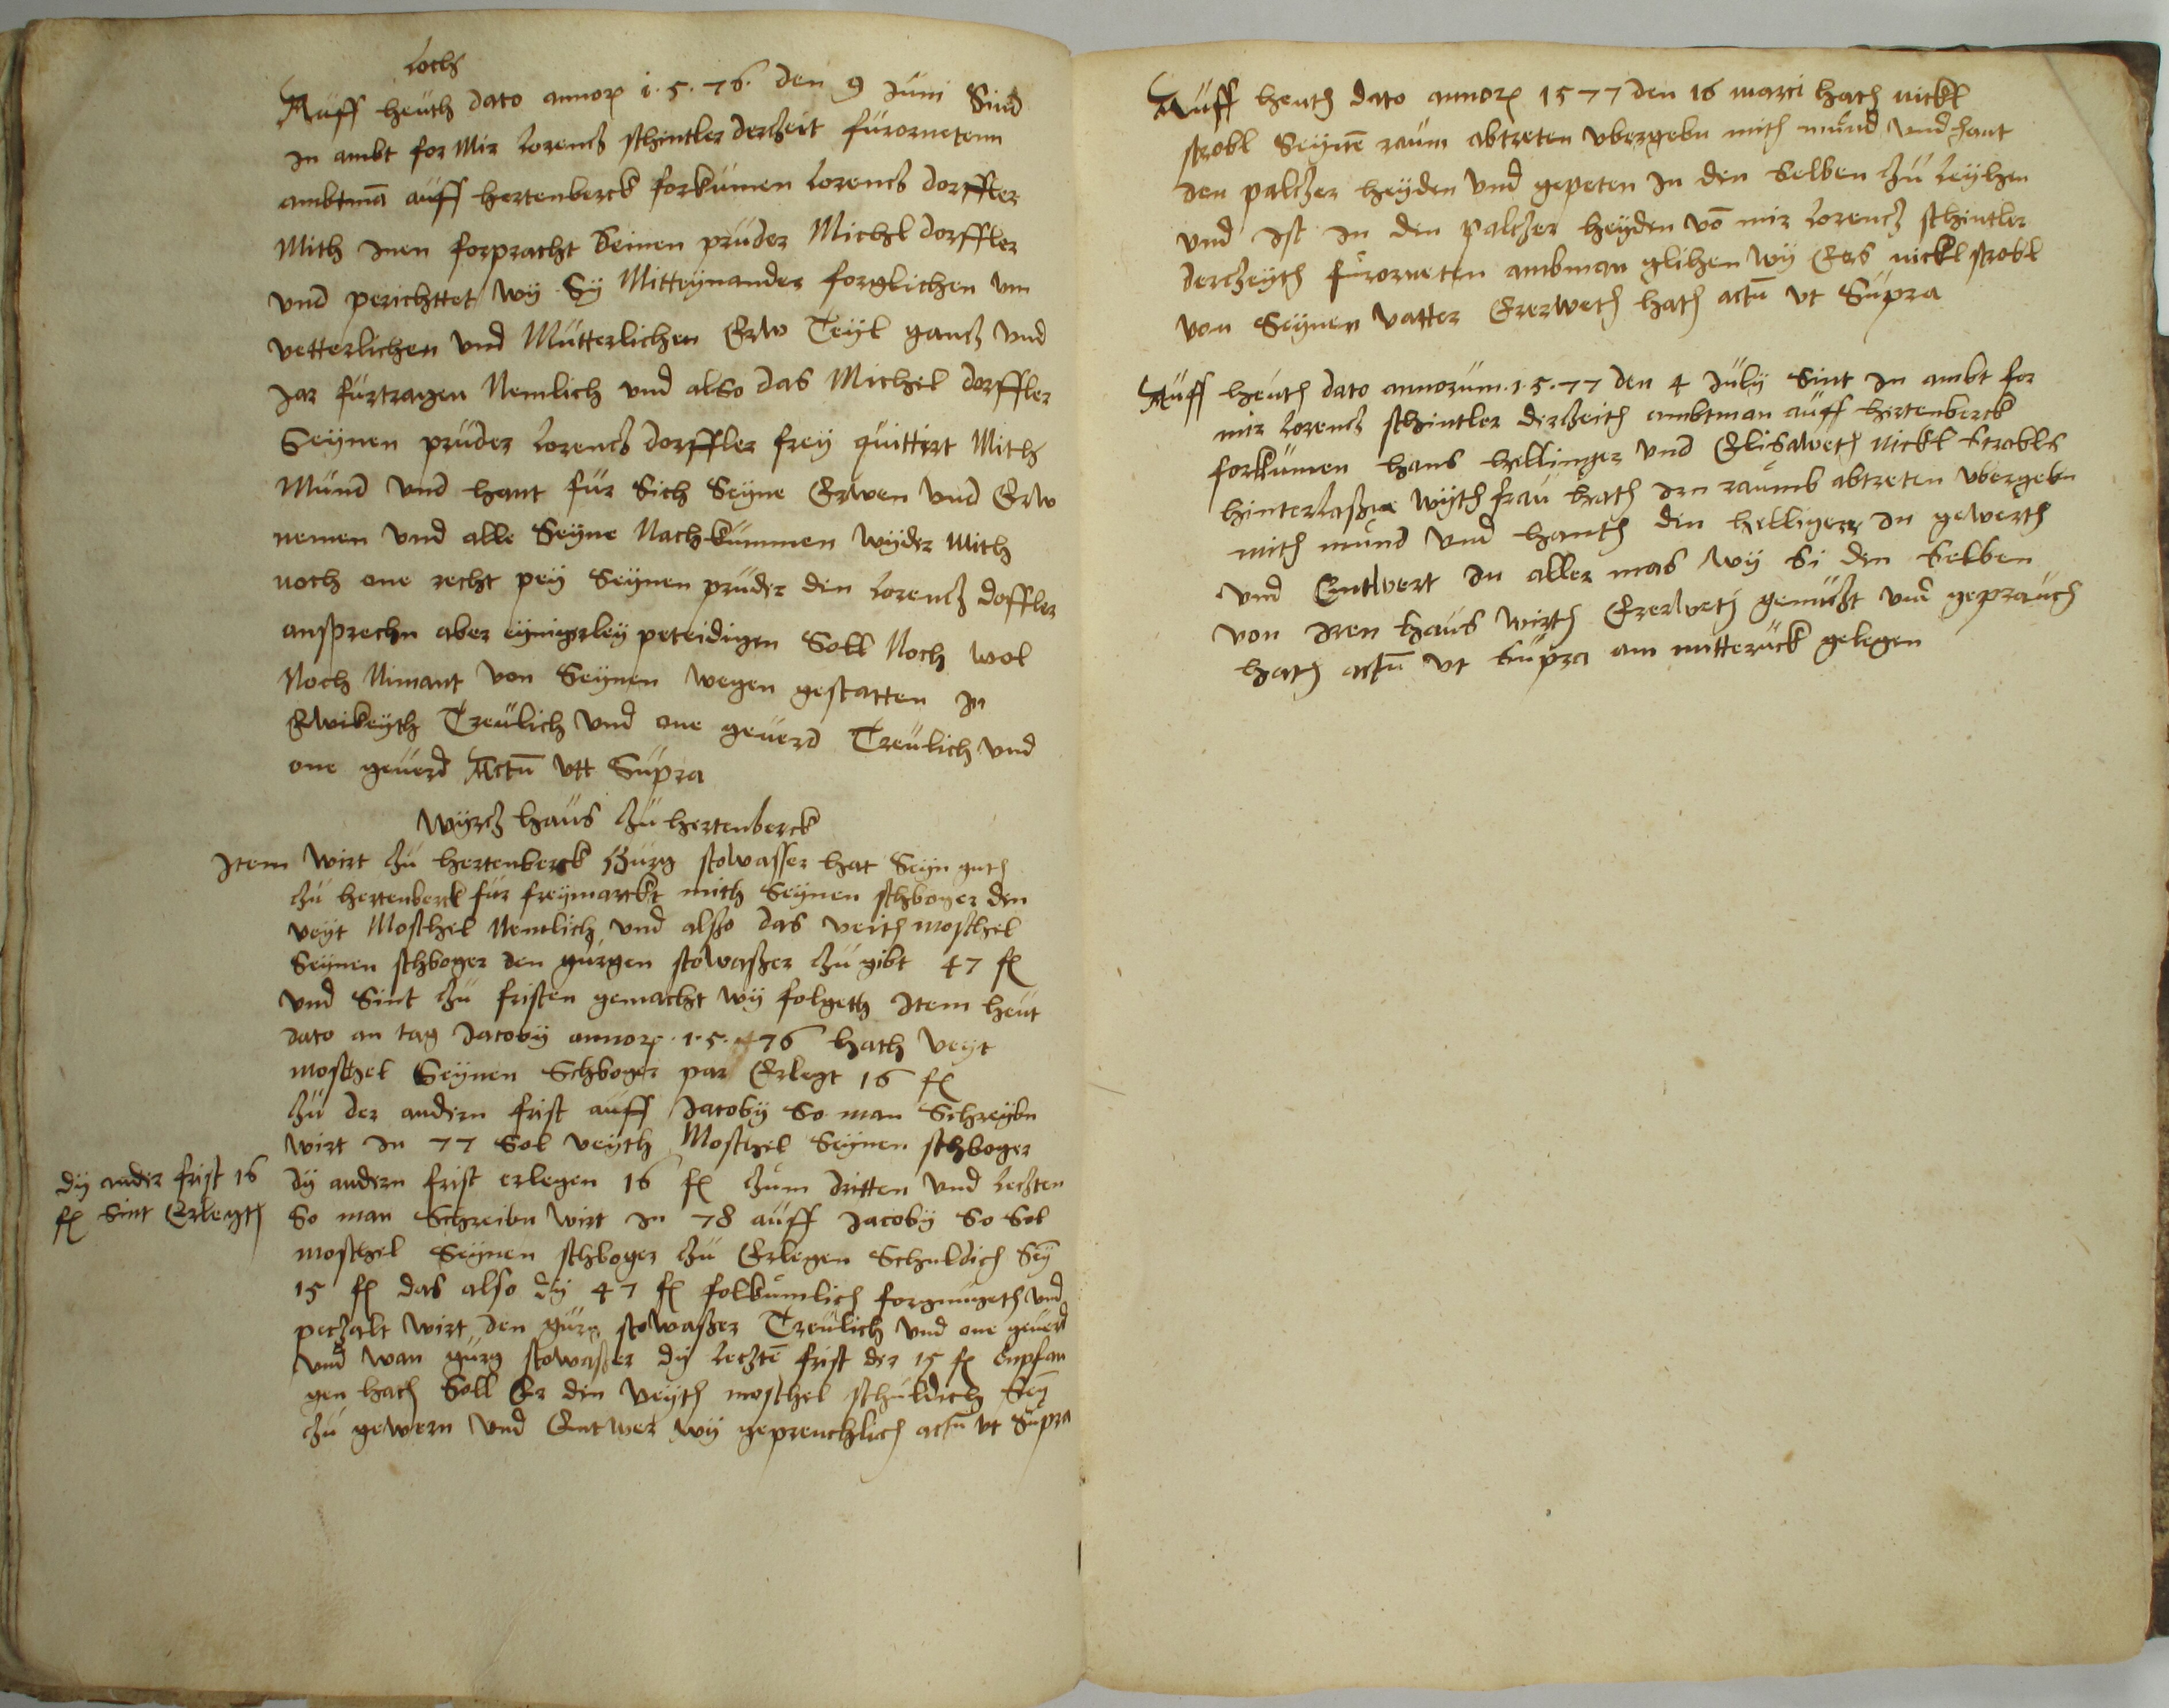 Loch
Auff heuth dato annorum 1.5.76. den 9 Juni Sind
In ambt for Mir Lorencz schintler derczeit fürornetenn
ambtman auff hertenberck forkumen Lorencz dorffler
Mith Inen forpracht Seinen prüder Michel dorffler
vnd perichttet wy Sy Mitteynander forglichen vm
vetterlichen vnd Mütterlichen Erw Teyl gancz vnd
gar fürtragen Nemlich vnd also das Michel dorffler
Seynen prüder Lorencz dorffler frey quittirt Mith
Mund vnd hant für Sich Seyne Erwen vnd Erw
nemen vnd alle Seyne Nachkummen wyder Mith
noch one recht pey Seynen prüder den Lorencz doffler
ansprechn aber eynigerley peteidigen Soll Noch wol
Noch Nimant von Seynen wegen gestatten In
Ewikeyth Treülich vnd one geuerd Treülich vnd
one geuerd Actum vtt Supra
Wyrcz haus Zu hertenberck
Item wirt Zu hertenberck Gürg stowasser hat Seyn guth
Zu hertenberck für freymarckt mith Seynen schboger den
veyt Moschel Nemlich vnd alßo das veith moschel
Seynen schboger den gürgen stowaßer Zu gibt 47 fl
vnd Sint Zu fristen gemacht wy folgeth Item heut
dato an tag Jacoby annorum 1.5.76 hath veyt
moschel Seynen Schboger par Erlegt 16 fl
Zu der andern frist auff Jacoby So man Schreybn
wirt In 77 Sol veyth Moschel Seynen schboger
dy andern frist erlegen 16 fl Zum dritten vnd leczten
So man Schreibn wirt In 78 auff Jacoby So Sol
moschel Seynen schboger Zu Erlegen Schuldich Sey
15 fl das also dy 47 fl folkumlich forgnugeth vnd
peczalt wirt den gürg stowaßer Treülich vnd one geuerd
vnd wan gürg stowaßer dy leczte frist der 15 fl Enpfan
gen hath Soll Er den veyth moschel schuldich Sey
Zu gewern vnd Entwer wy gepreuchlich actum vt Supra
dy ander frist 16
fl Sint Erlegth
Auff heuth dato annorum 1577 den 16 marci hath nickl
strobl Seynen raum abtreten vbergebn mith mund vnd hant
den palczer heyden vnd gepeten In den selben Zu leyhen
vnd Ist In den palczer heyden von mir Lorencz schintler
derczeyth fürorneten ambman glihen wy Ers nickl strobl
von Seynen vatter Ererweth hath actum vt Supra
Auff heuth dato annorum 1.5.77 den 4 July Sint In ambt for
mir Lorencz schintler derczeith ambtman auff hertenberck
forkumen hans hellinger vnd Elisaweth nickl strobls
hinterlaßne wyth frau hath den raumb abtreten vbergebn
mith mund vnd hanth den helliger In gewerth
vnd Entwert In aller mas wy Si den selben
von Iren haus wirth Ererweth genuczt vnd geprauch
hath actum vt supra am mitterück gelegen